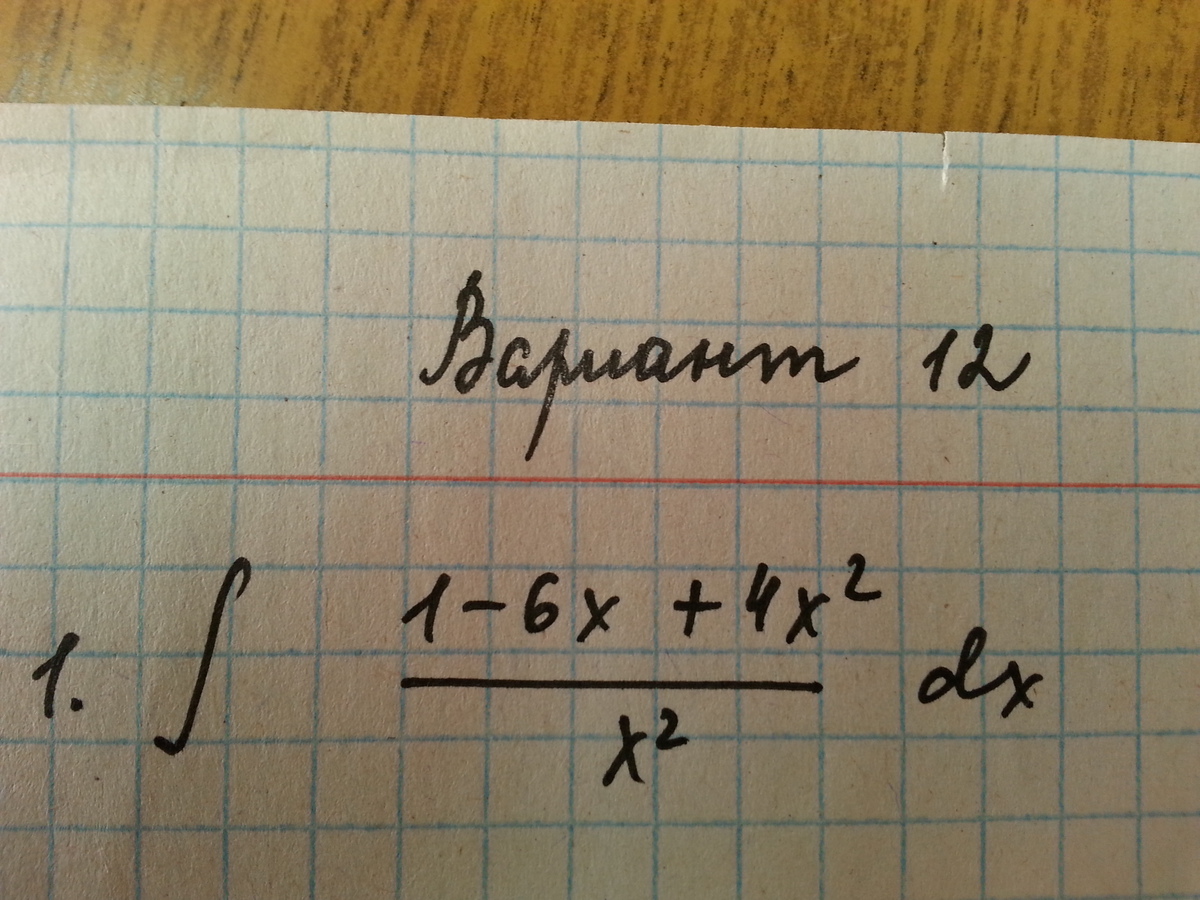 Вариант 12
1. ∫ (1-6x+4x²)/x² dx